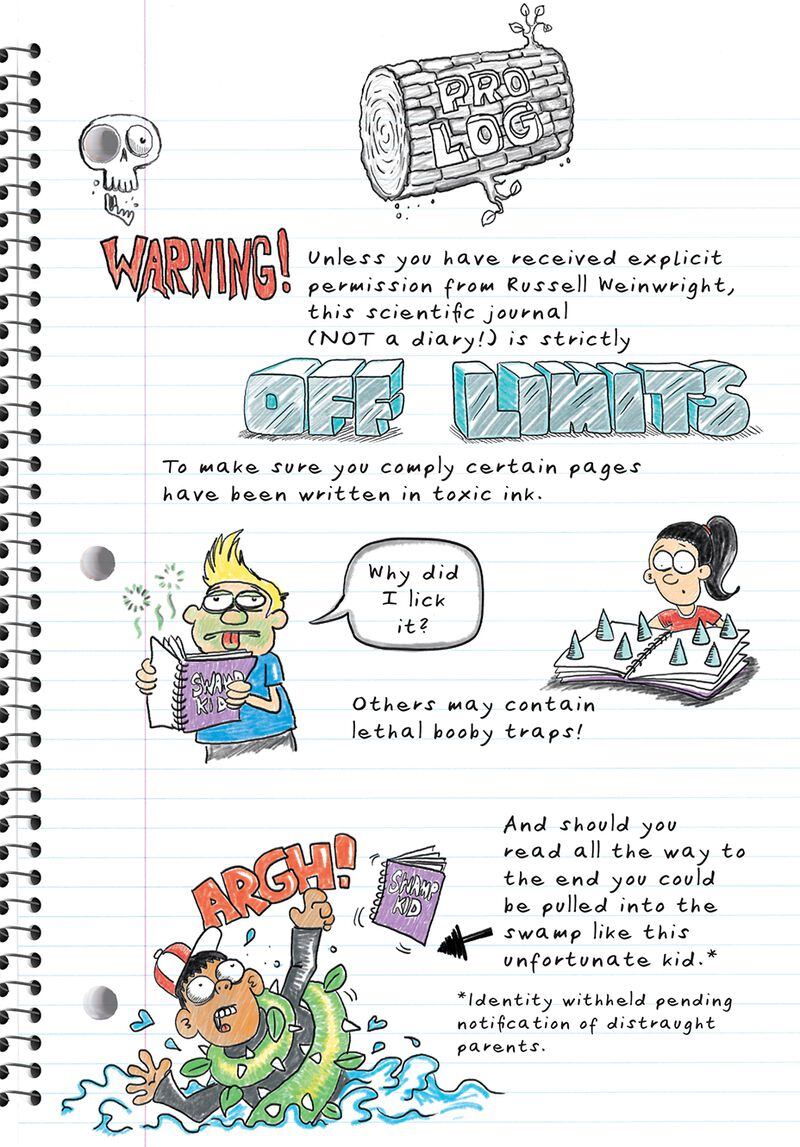 PRO
LOG
WARNING!
Unless you have received explicit
permission from Russell Weinwright,
this scientifc journal
(NOT a diary!) is strictly
OFF LIMITS
To make sure you comply certain pages
have been written in toxic ink.
Why did
I lick
it?
SWAMP
KID
Others may contain
lethal booby traps!
ARGH!
SWAMP
KID
And should you
read all the way to
the end you could
be pulled into the
swamp like this
unfortunate kid.*
*Identity withheld pending
notifcation of distraught
parents.